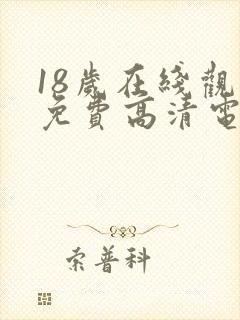 18歲在綫觀
免費高清電
索普科